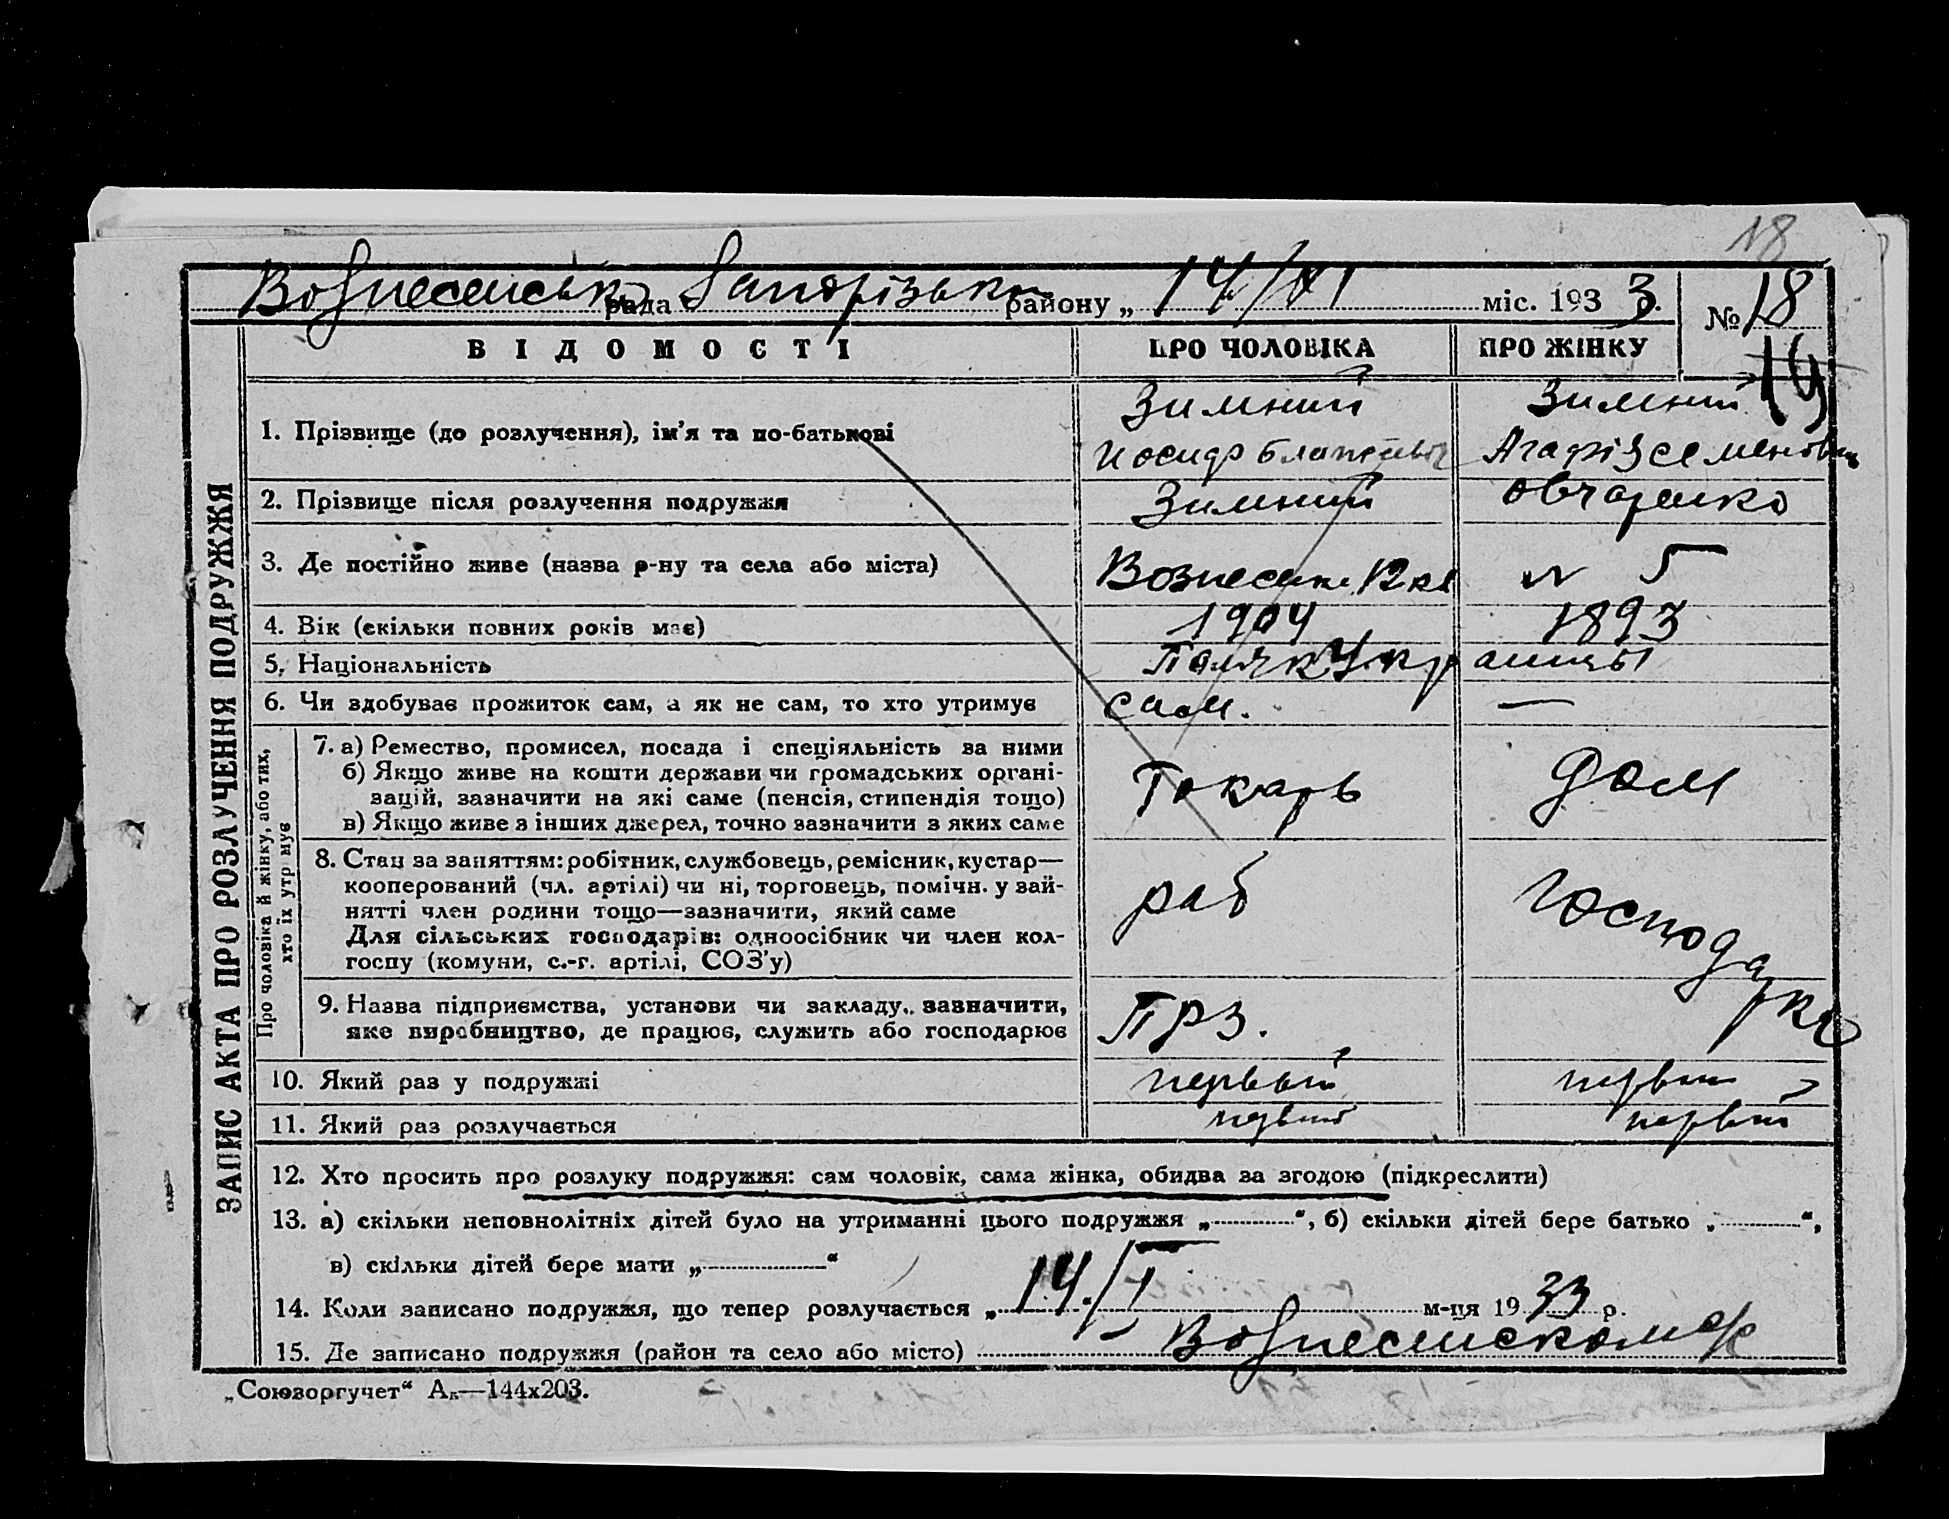 18
Вознесенська рада Запорізького району „ 14/VI міс. 1933.
№ 18
19
ВІДОМОСТІ ПРО ЧОЛОВІКА ПРО ЖІНКУ
1. Прізвище (до розлучення), ім’я та по-батькові Зимний Зимний
Иосиф Агафія Семеновна
2. Прізвище після розлучення подружжя Зимний Овчаренко
3. Де постійно живе (назва р-ну та села або міста) Вознесенк. 12 кв " 5
4. Вік (скільки повних років має) 1904 1893
5. Національність Поляк Украинцы
6. Чи здобував прожиток сам, а як не сам, то хто утримує сам. —
Про чоловіка й жінку, або тих, хто їх утримує
7. а) Ремество, промисел, посада і спеціяльність за ними
б) Якщо живе на кошти держави чи громадських органі-
зацій, зазначити на які саме (пенсія, стипендія тощо)
в) Якщо живе з інших джерел, точно зазначити з яких саме
Токарь дом
8. Стан за заняттям: робітник, службовець, ремісник, кустар—
кооперований (чл. артілі) чи ні, торговець, помічн. у зай-
нятті член родини тощо—зазначити, який саме
Для сільських господарів: одноосібник чи член кол-
госпу (комуни, с.-г. артілі, СОЗ’у)
раб господарка
9. Назва підприємства, установи чи закладу, зазначити,
яке виробництво, де працює, служить або господарює
ПРЗ.
10. Який раз у подружжі первый первый
11. Який раз розлучається первый первый
12. Хто просить про розлуку подружжя: сам чоловік, сама жінка, обидва за згодою (підкреслити)
13. а) скільки неповнолітніх дітей було на утриманні цього подружжя „ “, б) скільки дітей бере батько „ “,
в) скільки дітей бере мати „ “
14. Коли записано подружжя, що тепер розлучається „ 14/I м-ця 1933 р.
15. Де записано подружжя (район та село або місто) — Вознесенском
ЗАПИС АКТА ПРО РОЗЛУЧЕННЯ ПОДРУЖЖЯ
„Союзоргучет“ Ав—144х203.